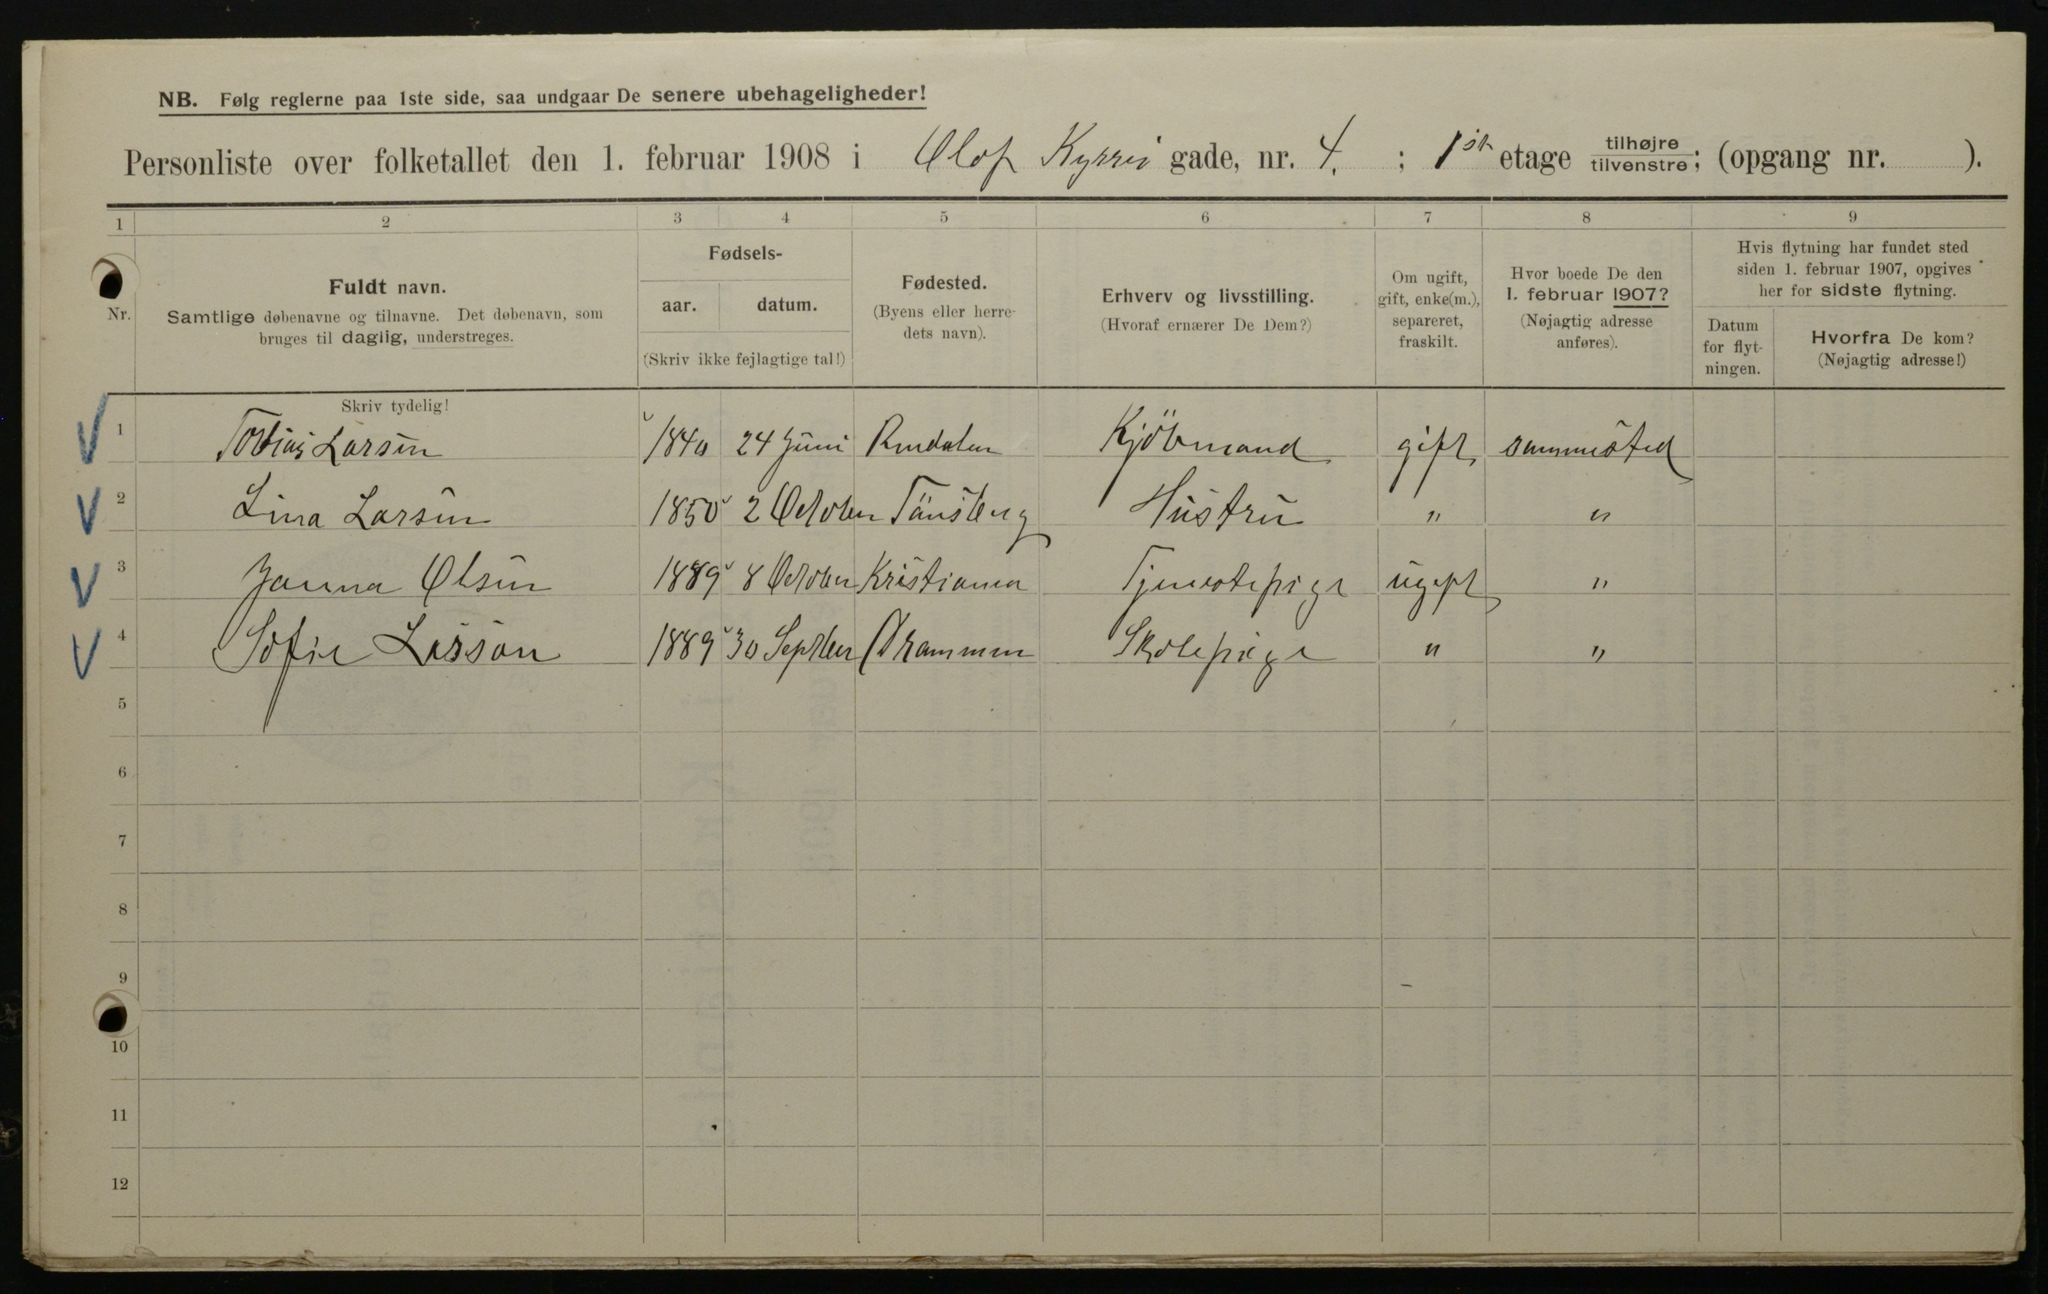 NB. Følg reglerne paa 1ste side, saa undgaar De senere ubehageligheder!
Personliste over folketallet den 1. februar 1908 i Olof Kyrres gade, nr. 4. ; 1ste etage tilhøjre tilvenstre; (opgang nr. ).
1 2 3 4 5 6 7 8 9
Nr.
Fuldt navn.
Samtlige døbenavne og tilnavne. Det døbenavn, som
bruges til daglig, understreges.
Fødsels-
aar. datum.
(Skriv ikke fejlagtige tal!)
Fødested.
(Byens eller herre-
dets navn).
Erhverv og livsstilling.
(Hvoraf ernærer De Dem?)
Om ugift,
gift, enke(m.),
separeret,
fraskilt.
Hvor boede De den
1. februar 1907?
(Nøjagtig adresse
anføres).
Hvis flytning har fundet sted
siden 1. februar 1907, opgives
her for sidste flytning.
Datum
for flyt-
ningen.
Hvorfra De kom?
(Nøjagtig adresse!)
Skriv tydelig!
1 Tobias Larsen 1840 24 Juni Kjöbmand gift sammested
2 Lina Larsen 1850 2 October Tönsberg Hustru " "
3 Janna Olsen 1889 8 October Kristiania Tjenestepige ugift "
4 Sofie Larsson 1889 30 Septber Drammen Skolepige " "
5
6
7
8
9
10
11
12